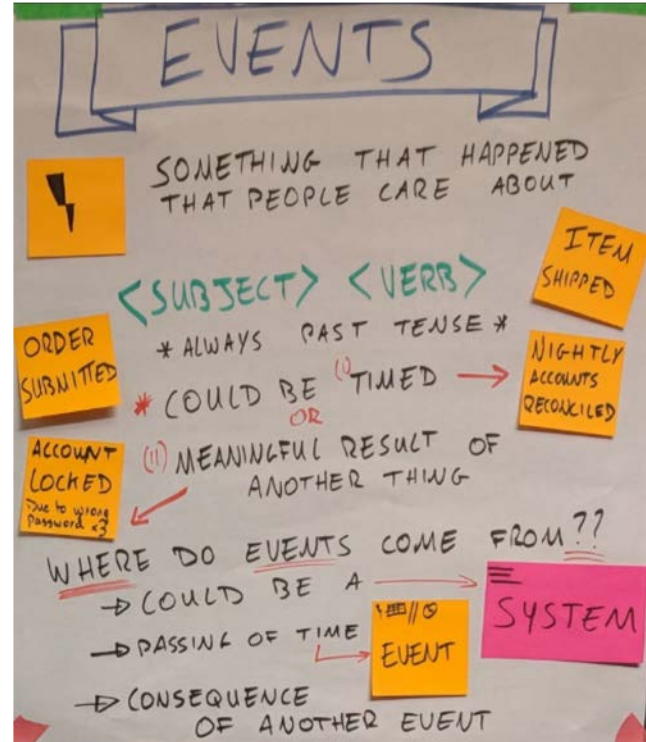 EVENTS
SOMETHING THAT HAPPENED
THAT PEOPLE CARE ABOUT
ITEM
SHIPPED
<SUBJECT> <VERB>
* ALWAYS PAST TENSE *
ORDER
SUBMITTED
* COULD BE (I) TIMED
OR
NIGHTLY
ACCOUNTS
RECONCILED
(II) MEANINGFUL RESULT OF
ANOTHER THING
ACCOUNT
LOCKED
Due to wrong
Password x3
WHERE DO EVENTS COME FROM??
COULD BE A
SYSTEM
PASSING OF TIME
EVENT
CONSEQUENCE
OF ANOTHER EVENT